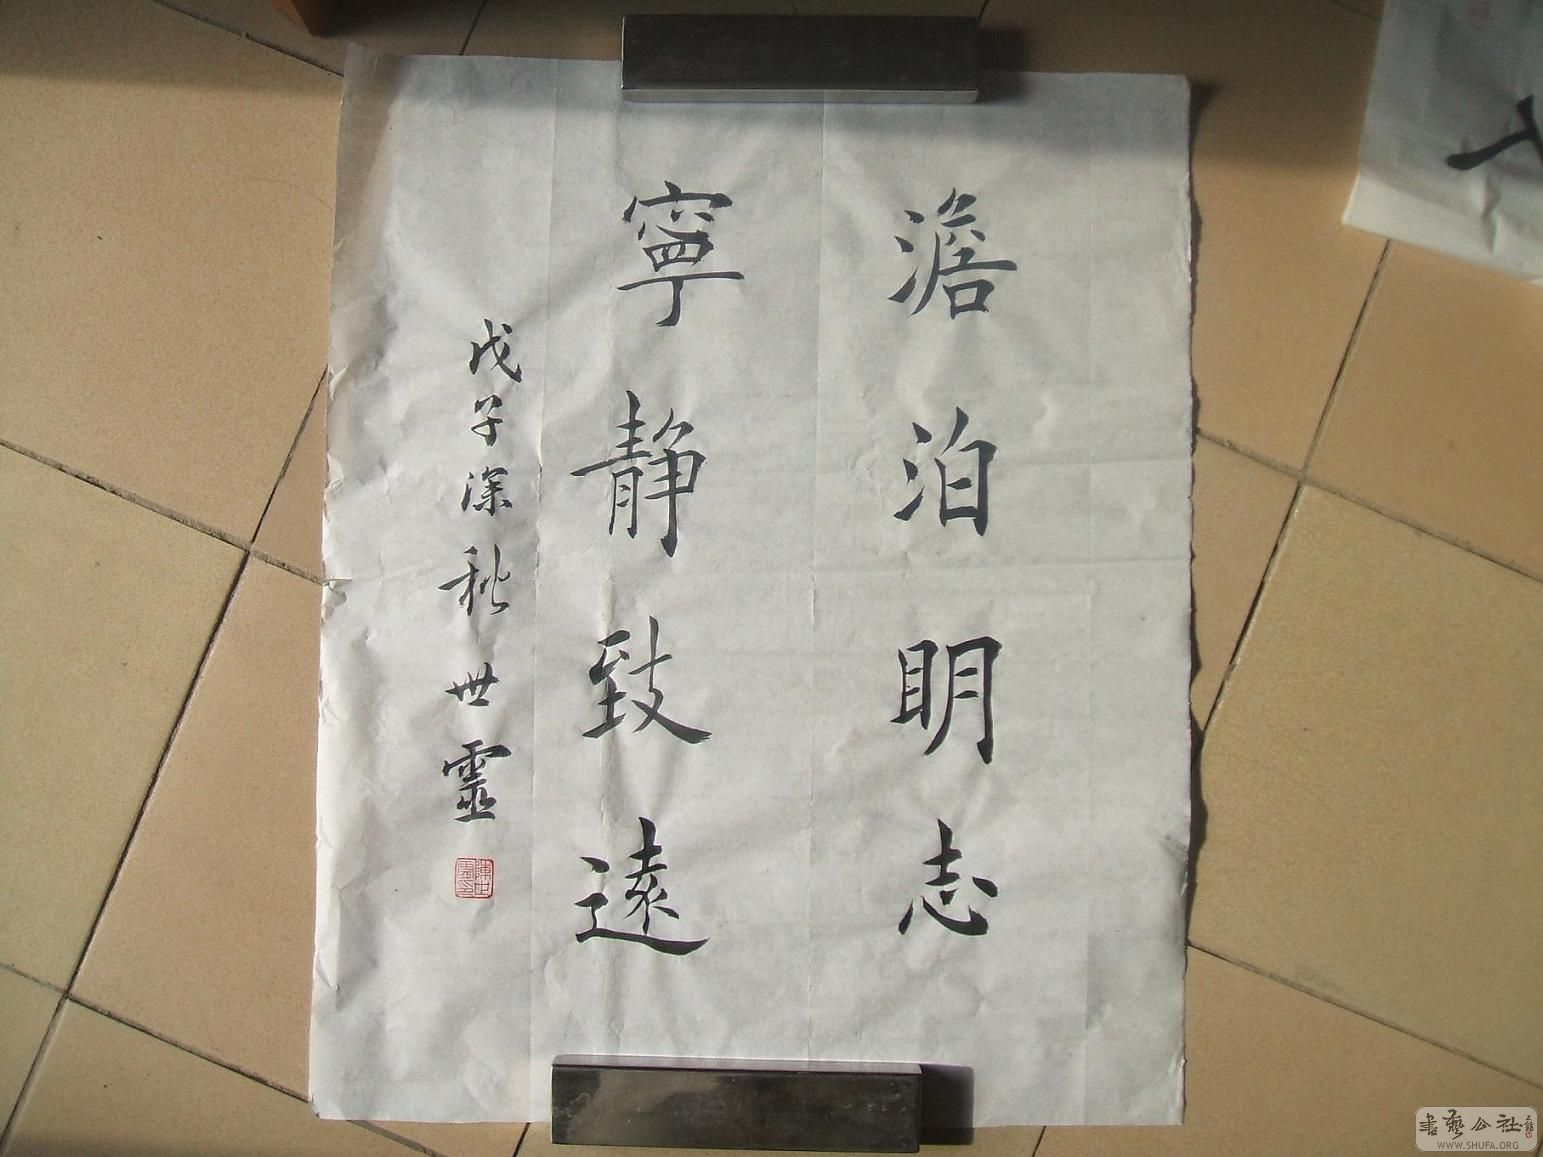 澹泊明志
寧靜致遠
戊子深秋 世靈
陳世靈印
書藝公社
WWW.SHUFA.ORG